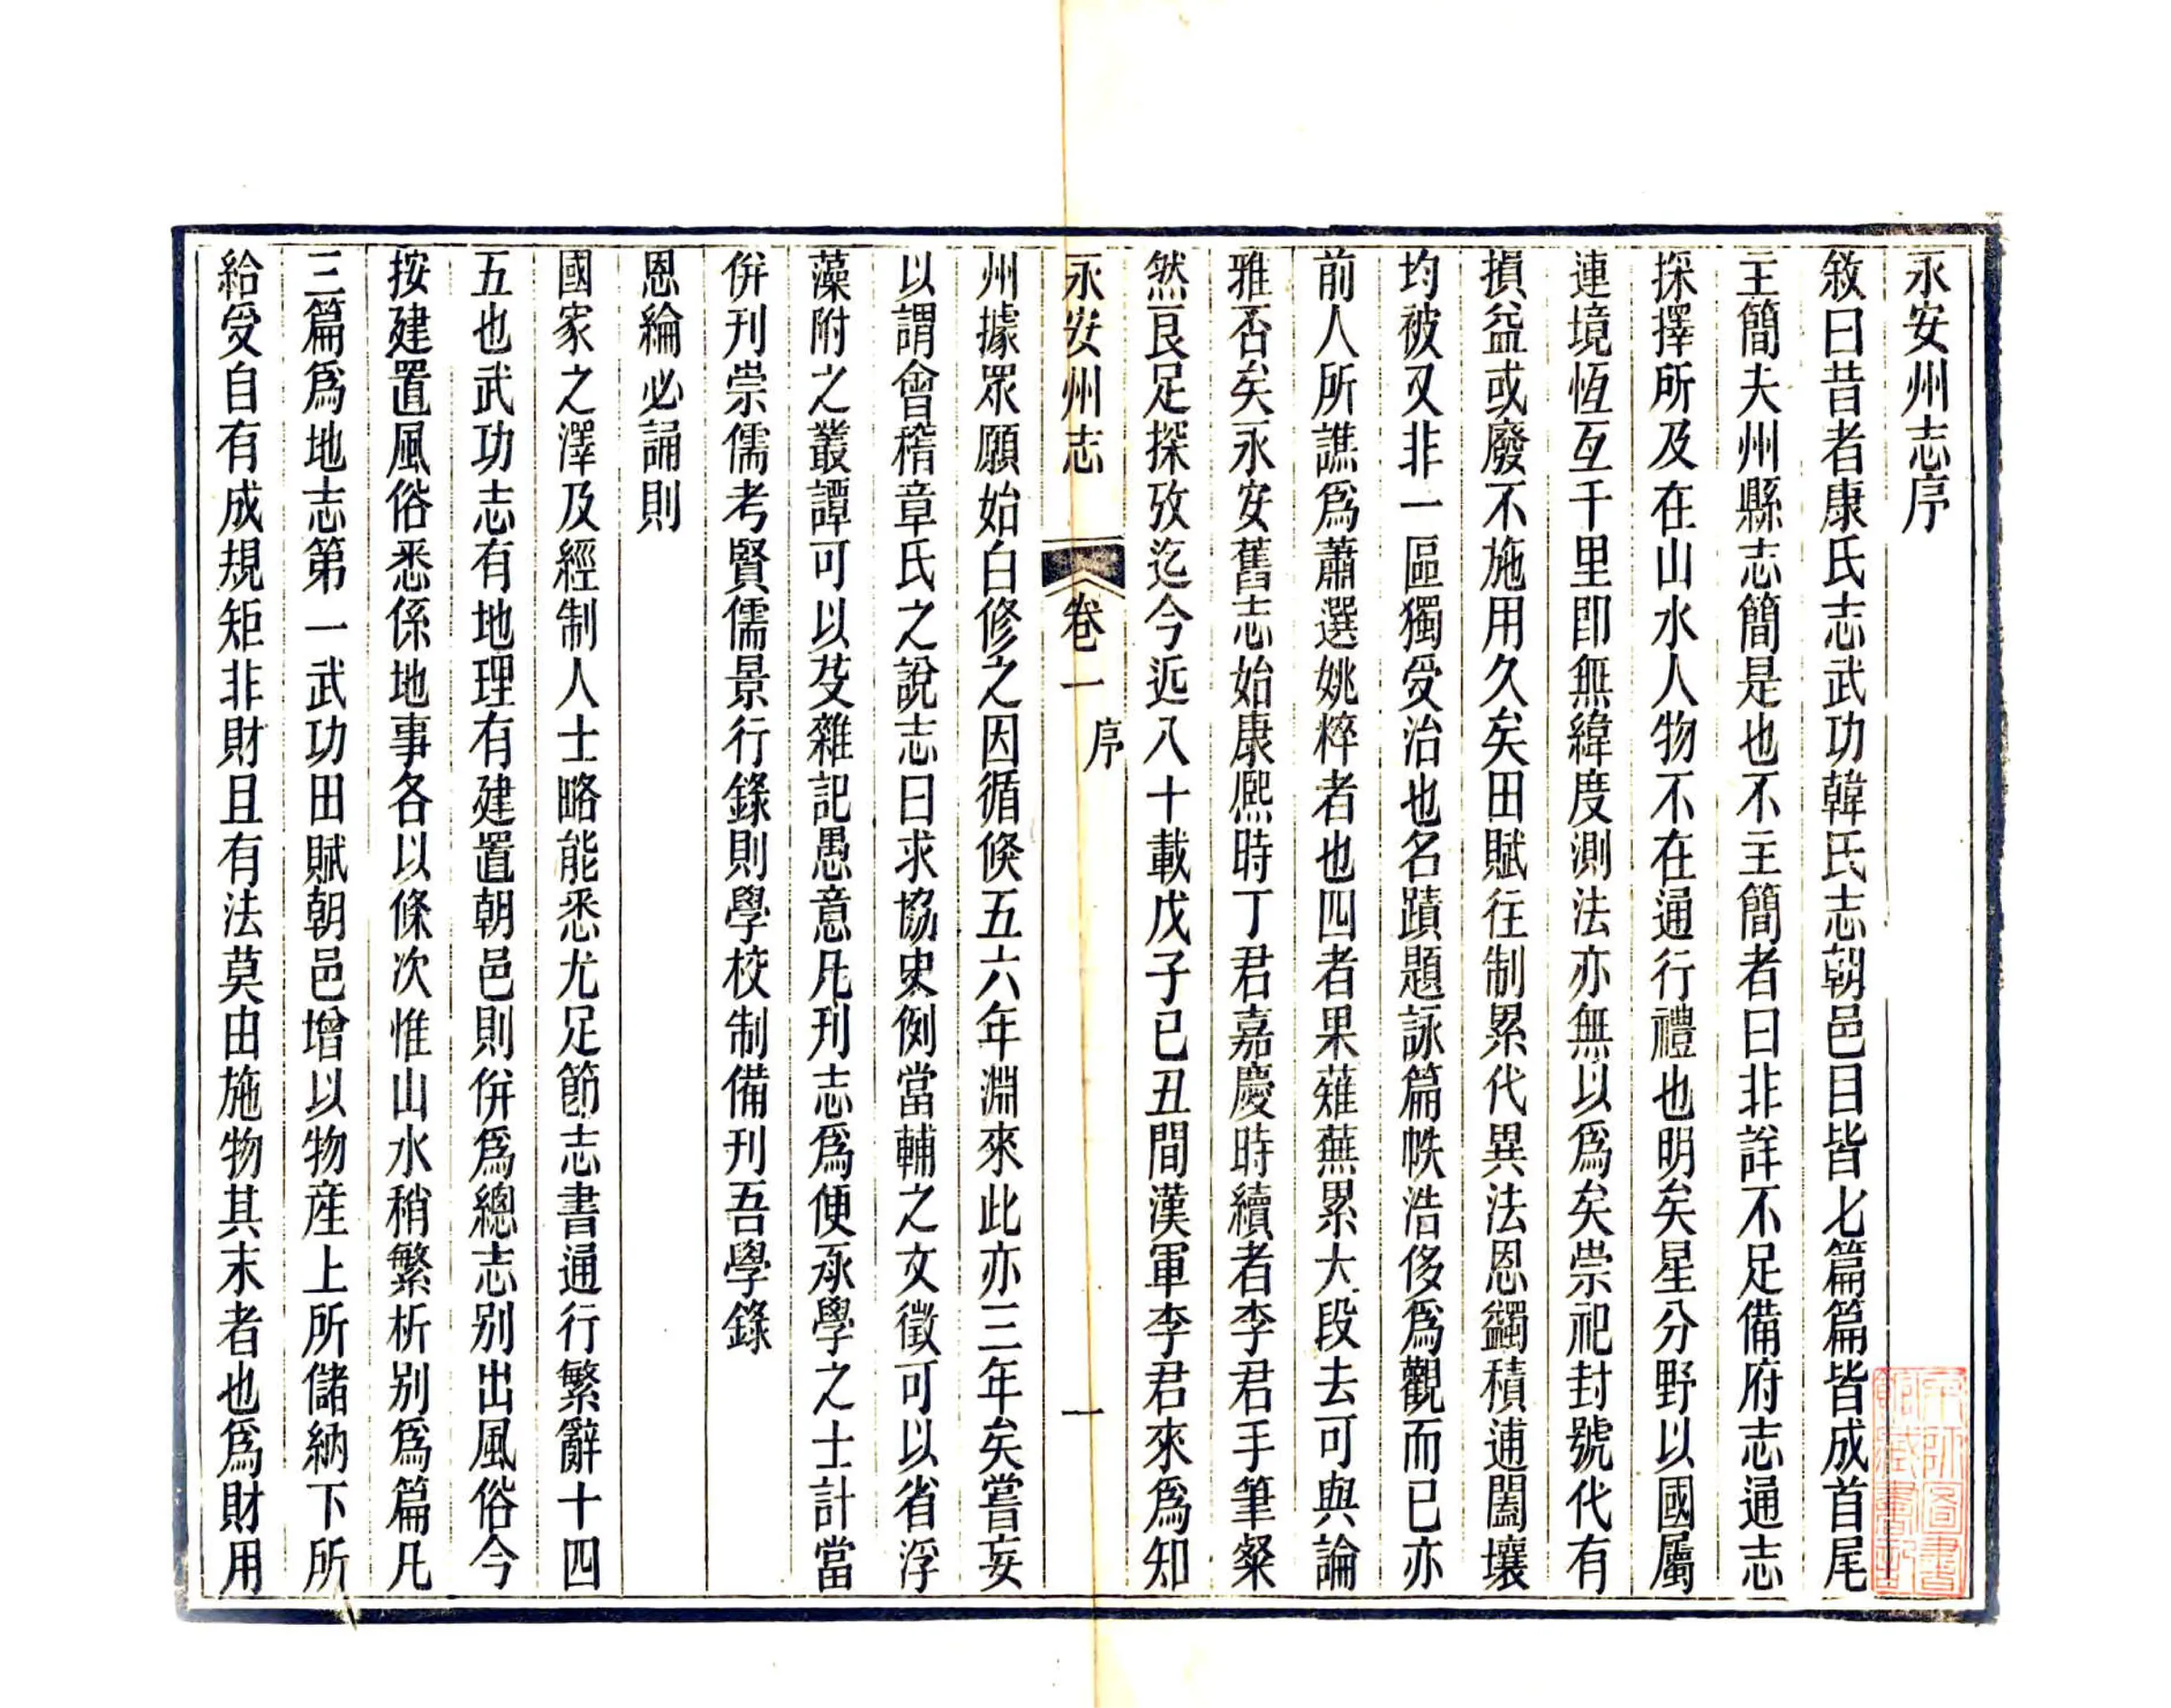 永安州志序
敘曰昔者康氏志武功韓氏志朝邑目皆七篇篇皆成首尾
主簡夫州縣志簡是也不主簡者曰非詳不足備府志通志
採擇所及在山水人物不在通行禮也明矣星分野以國屬
連境恆亙千里卽無緯度測法亦無以爲矣崇祀封號代有
損益或廢不施用久矣田賦往制累代異法恩蠲積逋闔壤
均被又非一區獨受治也名蹟題詠篇帙浩侈爲觀而已亦
前人所譙爲蕭選姚粹者也四者果薙蕪累大段去可與論
雅否矣永安舊志始康熙時丁君嘉慶時續者李君手筆粲
然良足探攷迄今近八十載戊子已丑間漢軍李君來爲知
永安州志
卷一
序
一
州據眾願始白修之因循倏五六年淵來此亦三年矣嘗妄
以謂會稽章氏之說志曰求協史例當輔之文徵可以省浮
藻附之叢譚可以芟雜記愚意凡刋志爲便承學之士計當
併刊崇儒考賢儒景行錄則學校制備刋吾學錄
恩綸必誦則
國家之澤及經制人士略能悉尤足節志書通行繁辭十四
五也武功志有地理有建置朝邑則併爲總志別出風俗今
按建置風俗悉係地事各以條次惟山水稍繁析別爲篇凡
三篇爲地志第一武功田賦朝邑增以物産上所儲納下所
給受自有成規矩非財且有法莫由施物其末者也爲財用